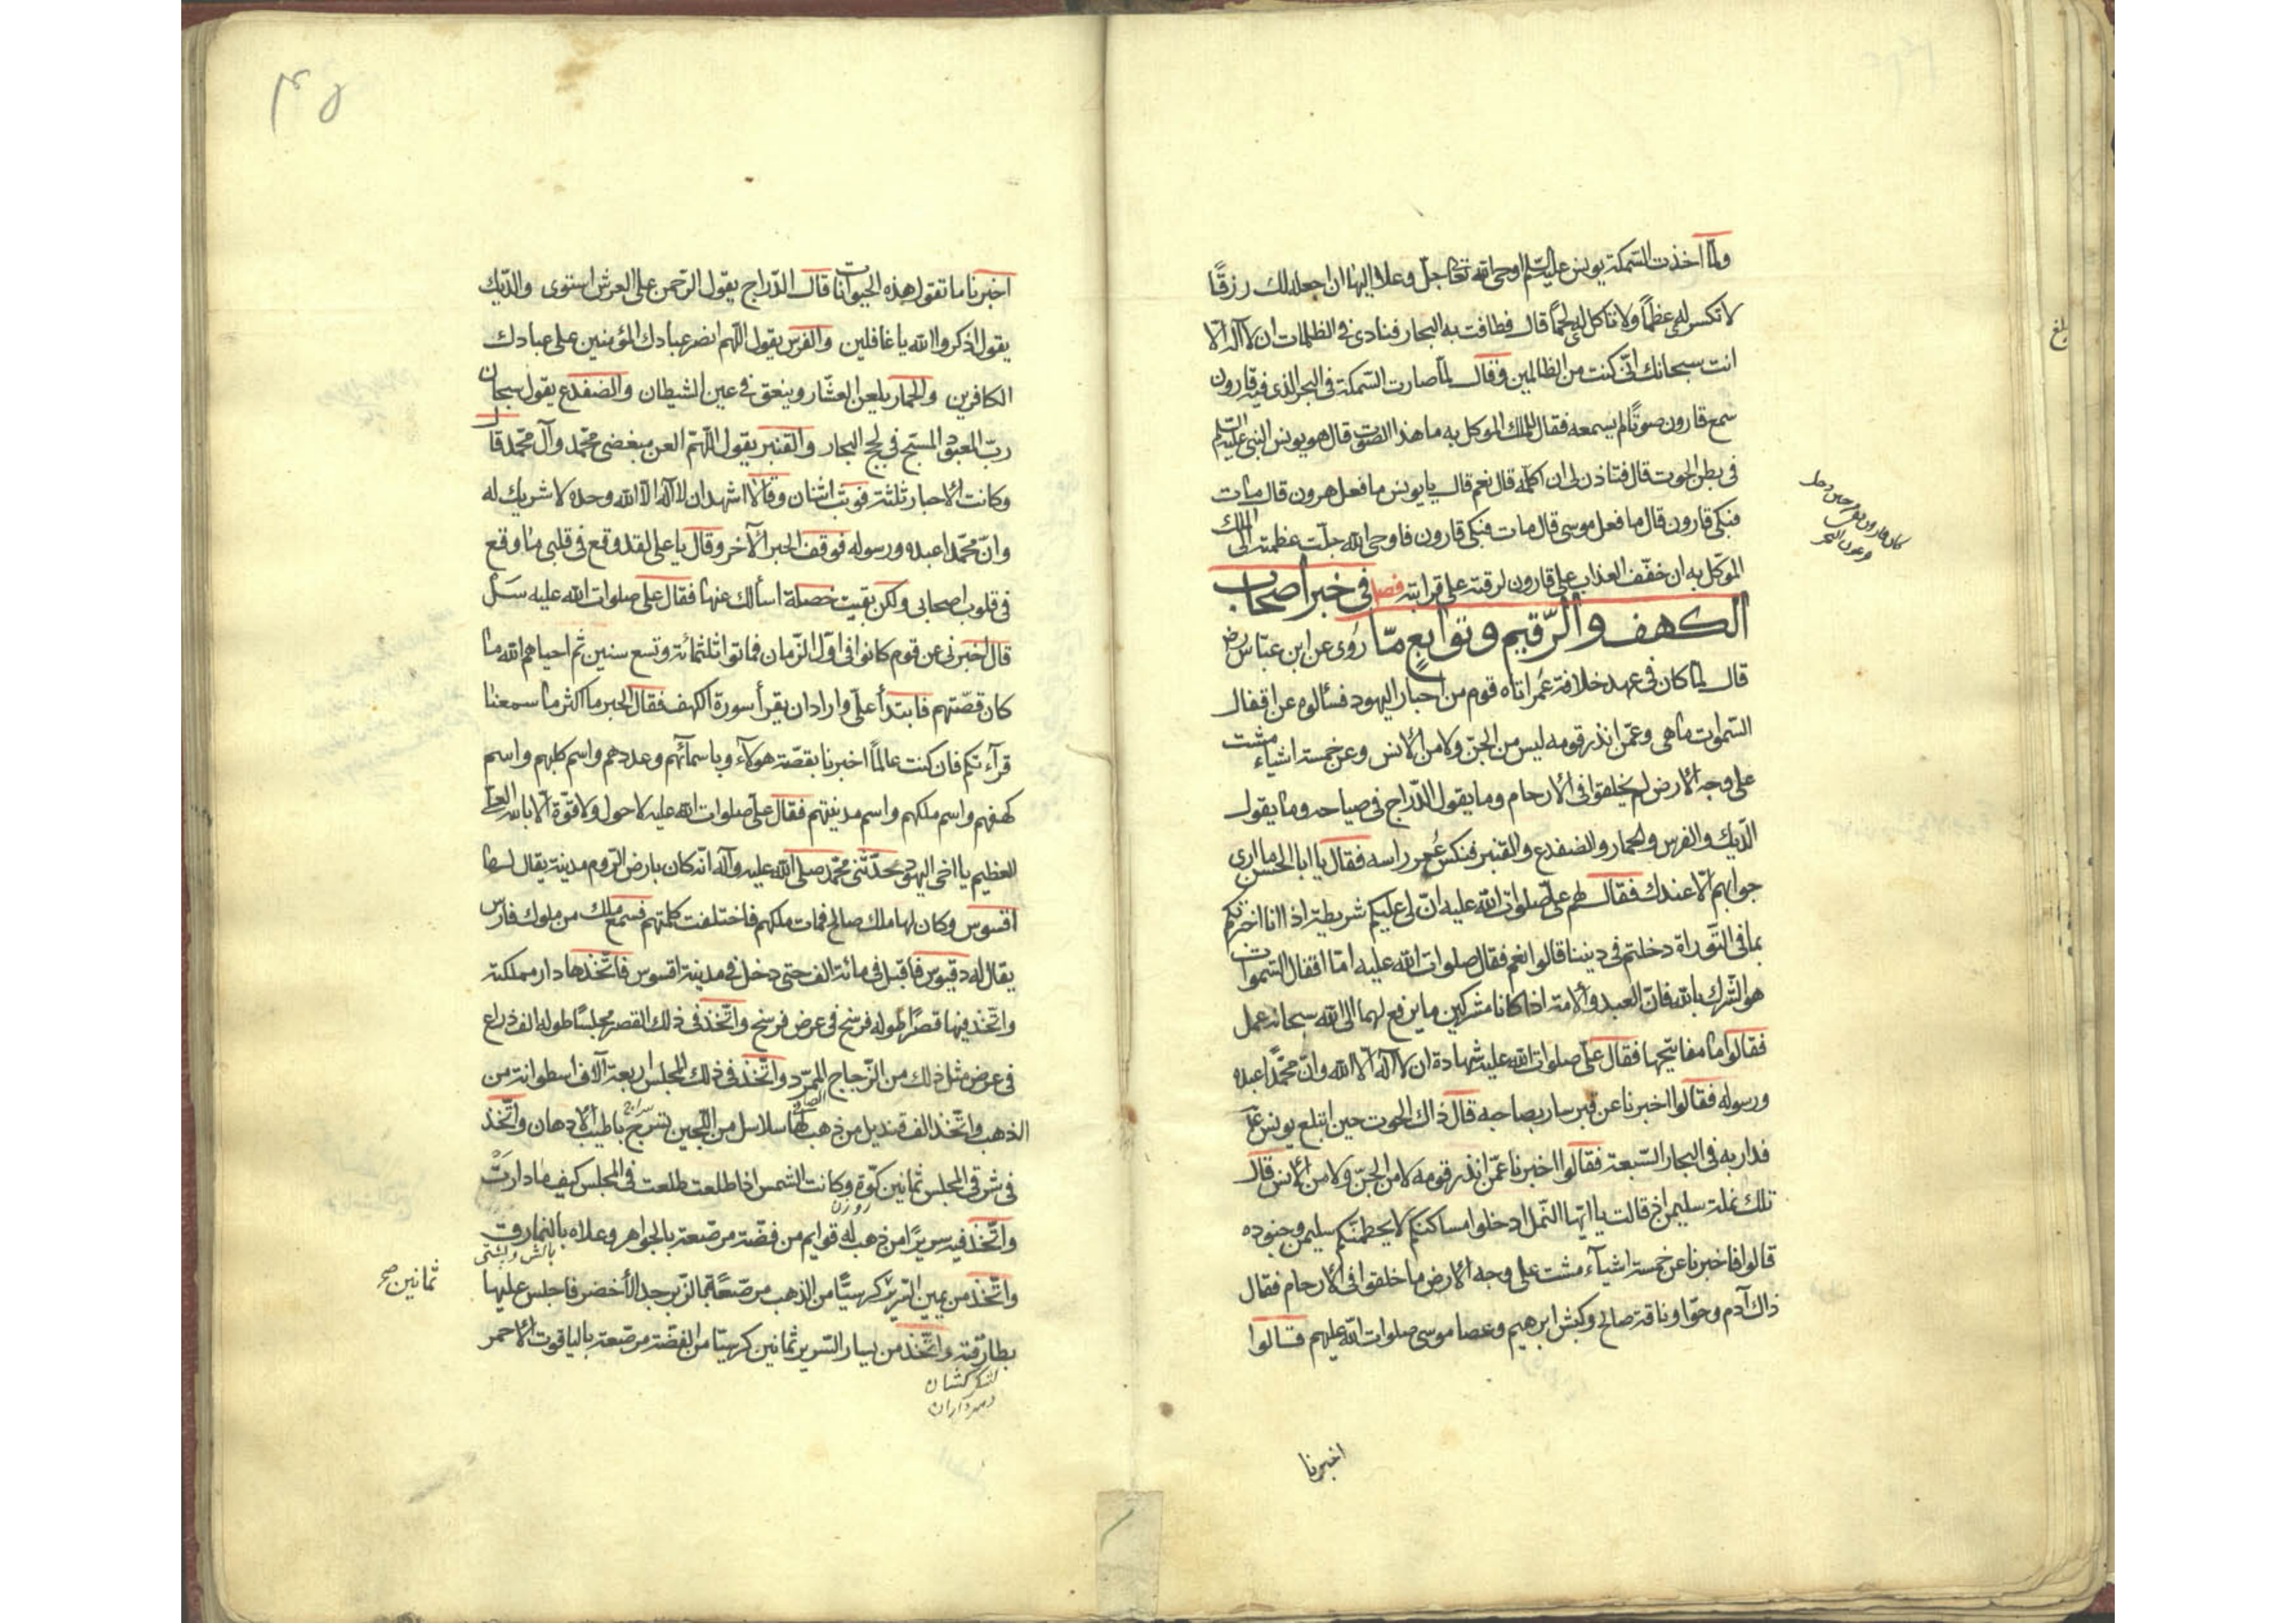 ولما اخذت السمكة يونس عليه السلم اوحى الله تعالى جل وعلا اليها ان اجعله لك رزقًا
لا تكسر له عظمًا ولا تأكل له لحمًا قال فطافت به البحار فنادى في الظلمات ان لا اله الا
انت سبحانك انى كنت من الظالمين وقال لما صارت السمكة في البحر الذى فيه قارون
سمع قارون صوتًا لم يسمعه فقال للملك الموكل به ما هذا الصوت قال هو يونس النبى عليه السلم
فى بطن الحوت قال فتاذن لى ان اكلمه قال نعم قال يا يونس ما فعل هرون قال مات
فبكى قارون قال ما فعل موسى قال مات فبكى قارون فاوحى الله جلت عظمته الى الملك
الموكل به ان خفف العذاب على قارون لرقته على قرابته فصل فى خبر اصحاب
الكهف والرقيم وتوابع مما روى عن ابن عباس رض
قال لما كان فى عهد خلافة عمر اتاه قوم من احبار اليهود فسألوه عن اقفال
السموات ما هى وعمن انذر قومه ليس من الجن ولا من الانس وعن خمسة اشياء مشت
على وجه الارض لم يخلقوا فى الارحام وما يقول الدراج فى صياحه وما يقول
الديك والفرس والحمار والضفدع والقنبر فنكس عمر راسه فقال يا ابا الحسن ما ارى
جوابهم الا عندك فقال لهم على صلوات الله عليه ان لى عليكم شريطة اذا انا اخبرتكم
بما فى التوراة دخلتم فى ديننا قالوا نعم فقال صلوات الله عليه اما اقفال السموات
هو الشرك بالله فان العبد والامة اذا كانا مشركين ما يرفع لهما الى الله سبحانه عمل
فقالوا ما مفاتيحها فقال على صلوات الله عليه شهادة ان لا اله الا الله وان محمدًا عبده
ورسوله فقالوا اخبرنا عن قبر سار بصاحبه قال ذاك الحوت حين ابتلع يونس ع
فدار به فى البحار السبعة فقالوا اخبرنا عمن انذر قومه لا من الجن ولا من الانس قال
تلك نملة سليمن اذ قالت يا ايها النمل ادخلوا مساكنكم لا يحطمنكم سليمن وجنوده
قالوا فاخبرنا عن خمسة اشيآء مشت على وجه الارض ما خلقوا فى الارحام فقال
ذاك آدم وحوا وناقة صالح وكبش ابرهيم وعصا موسى صلوات الله عليهم قالوا
اخبرنا
بلغ
اخبرنا ما تقول هذه الحيوانات قال الدراج يقول الرحمن على العرش استوى والديك
يقول اذكروا الله يا غافلين والفرس يقول اللهم انصر عبادك المؤمنين على عبادك
الكافرين والحمار يلعن العشار وينعق فى عين الشيطان والضفدع يقول سبحان
رب المعبود المسبح فى لجج البحار والقنبر يقول اللهم العن مبغضى محمد وآل محمد قال
وكانت الاحبار ثلثة فوثب اثنان وقالا اشهد ان لا اله الا الله وحده لا شريك له
وان محمدا عبده ورسوله فوقف الحبر الآخر وقال يا على لقد وقع فى قلبى ما وقع
فى قلوب اصحابى ولكن بقيت خصلة اسألك عنها فقال على صلوات الله عليه سل
قال اخبرنى عن قوم كانوا فى اول الزمان فماتوا ثلثمائة وتسع سنين ثم احياهم الله ما
كان قصتهم فابتدأ على واراد ان يقرأ سورة الكهف فقال الحبر ما اكثر ما سمعنا
قرآءتكم فان كنت عالمًا اخبرنا بقصة هولآء وباسمآئهم وعددهم واسم كلبهم واسم
كهفهم واسم ملكهم واسم مدينتهم فقال على صلوات الله عليه لا حول ولا قوة الا بالله العلى
العظيم يا اخى اليهود حدثنى محمد صلى الله عليه وآله انه كان بارض الروم مدينة يقال لها
اقسوس وكان لها ملك صالح فمات ملكهم فاختلفت كلمتهم فسمع ملك من ملوك فارس
يقال له دقيوس فاقبل فى مائة الف حتى دخل فى مدينة اقسوس فاتخذها دار مملكته
واتخذ فيها قصرًا طوله فرسخ فى عرض فرسخ واتخذ فى ذلك القصر مجلسًا طوله الف ذراع
فى عرض مثل ذلك من الزجاج الممرد واتخذ فى ذلك المجلس اربعة آلاف اسطوانة من
الذهب واتخذ الف قنديل من ذهب لها سلاسل من اللجين تسرج باطيب الادهان واتخذ
فى شرقى المجلس ثمانين كوة وكانت الشمس اذا طلعت طلعت فى المجلس كيف ما دارت
روزن
واتخذ فيه سريرًا من ذهب له قوايم من فضة مرصعة بالجواهر وعلاه بالنمارق
بالش وپشتى
واتخذ من يمين السرير كرسيًا من الذهب مرصعة بالزبرجد الأخضر فاجلس عليها
ثمانين صح
بطارقته واتخذ من يسار السرير ثمانين كرسيا من الفضة مرصعة بالياقوت الاحمر
لشكر كشان